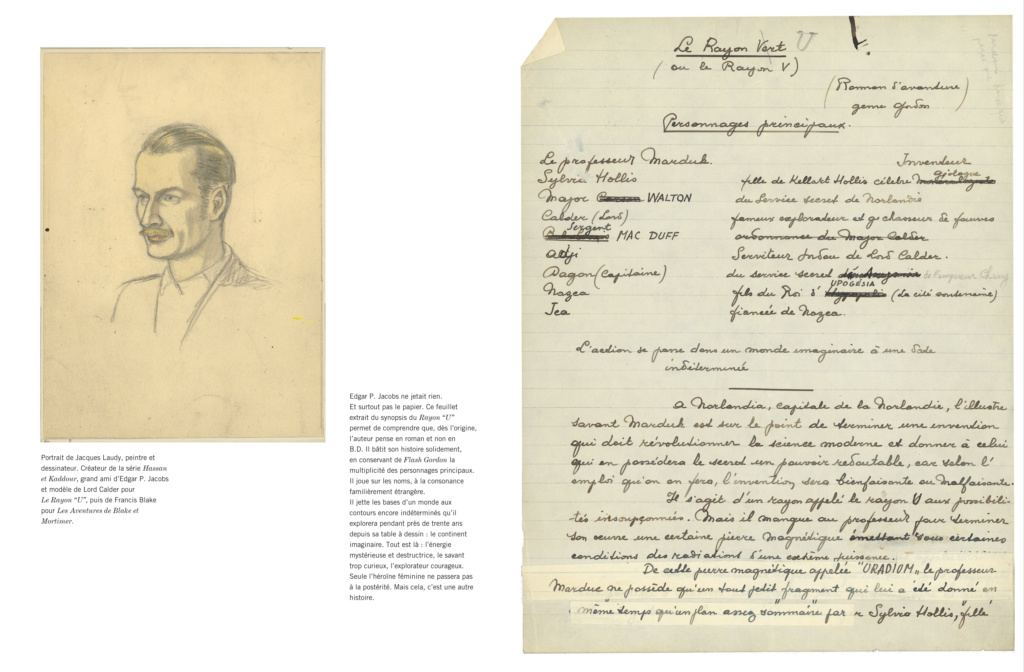 Portrait de Jacques Laudy, peintre et
dessinateur. Créateur de la série Hassan
et Kaddour, grand ami d'Edgar P. Jacobs
et modèle de Lord Calder pour
Le Rayon "U", puis de Francis Blake
pour Les Aventures de Blake et
Mortimer.
Edgar P. Jacobs ne jetait rien.
Et surtout pas le papier. Ce feuillet
extrait du synopsis du Rayon "U"
permet de comprendre que, dès l'origine,
l'auteur pense en roman et non en
B.D. Il bâtit son histoire solidement,
en conservant de Flash Gordon la
multiplicité des personnages principaux.
Il joue sur les noms, à la consonance
familièrement étrangère.
Il jette les bases d'un monde aux
contours encore indéterminés qu'il
explorera pendant près de trente ans
depuis sa table à dessin : le continent
imaginaire. Tout est là : l'énergie
mystérieuse et destructrice, le savant
trop curieux, l'explorateur courageux.
Seule l'héroïne féminine ne passera pas
à la postérité. Mais cela, c'est une autre
histoire.
Le Rayon Vert U
(ou le Rayon V)
(Roman d'aventure
genre Gordon)
Personnages principaux.
Le professeur Marduk. Inventeur
Sylvia Hollis fille de Kellart Hollis célèbre géologue
Major WALTON du Service secret de Norlandie
Calder (Lord) fameux explorateur et gd chasseur de fauves
Sergent MAC DUFF ordonnance du Major Calder
Adji Serviteur Indou de Lord Calder.
Dagon (Capitaine) du service secret
Nazca fils du Roi d' UPOGESIA (La cité souterraine)
Ica fiancée de Nazca.
L'action se passe dans un monde imaginaire à une date
indéterminée
A Norlandia, capitale de la Norlandie, l'illustre
savant Marduk est sur le point de terminer une invention
qui doit révolutionner la science moderne et donner à celui
qui en possédera le secret un pouvoir redoutable, car selon l'
emploi qu'on en fera, l'invention sera bienfaisante ou malfaisante.
Il s'agit d'un rayon appelé le rayon U aux possibili-
tés insoupçonnées. Mais il manque au professeur pour terminer
son œuvre une certaine pierre magnétique emettant sous certaines
conditions des radiations d'une extrême puissance.
De cette pierre magnétique appelée "URADIUM" le professeur
Marduc ne possède qu'un tout petit fragment qui lui a été donné en
même temps qu'un plan assez sommaire par Sylvia Hollis, fille